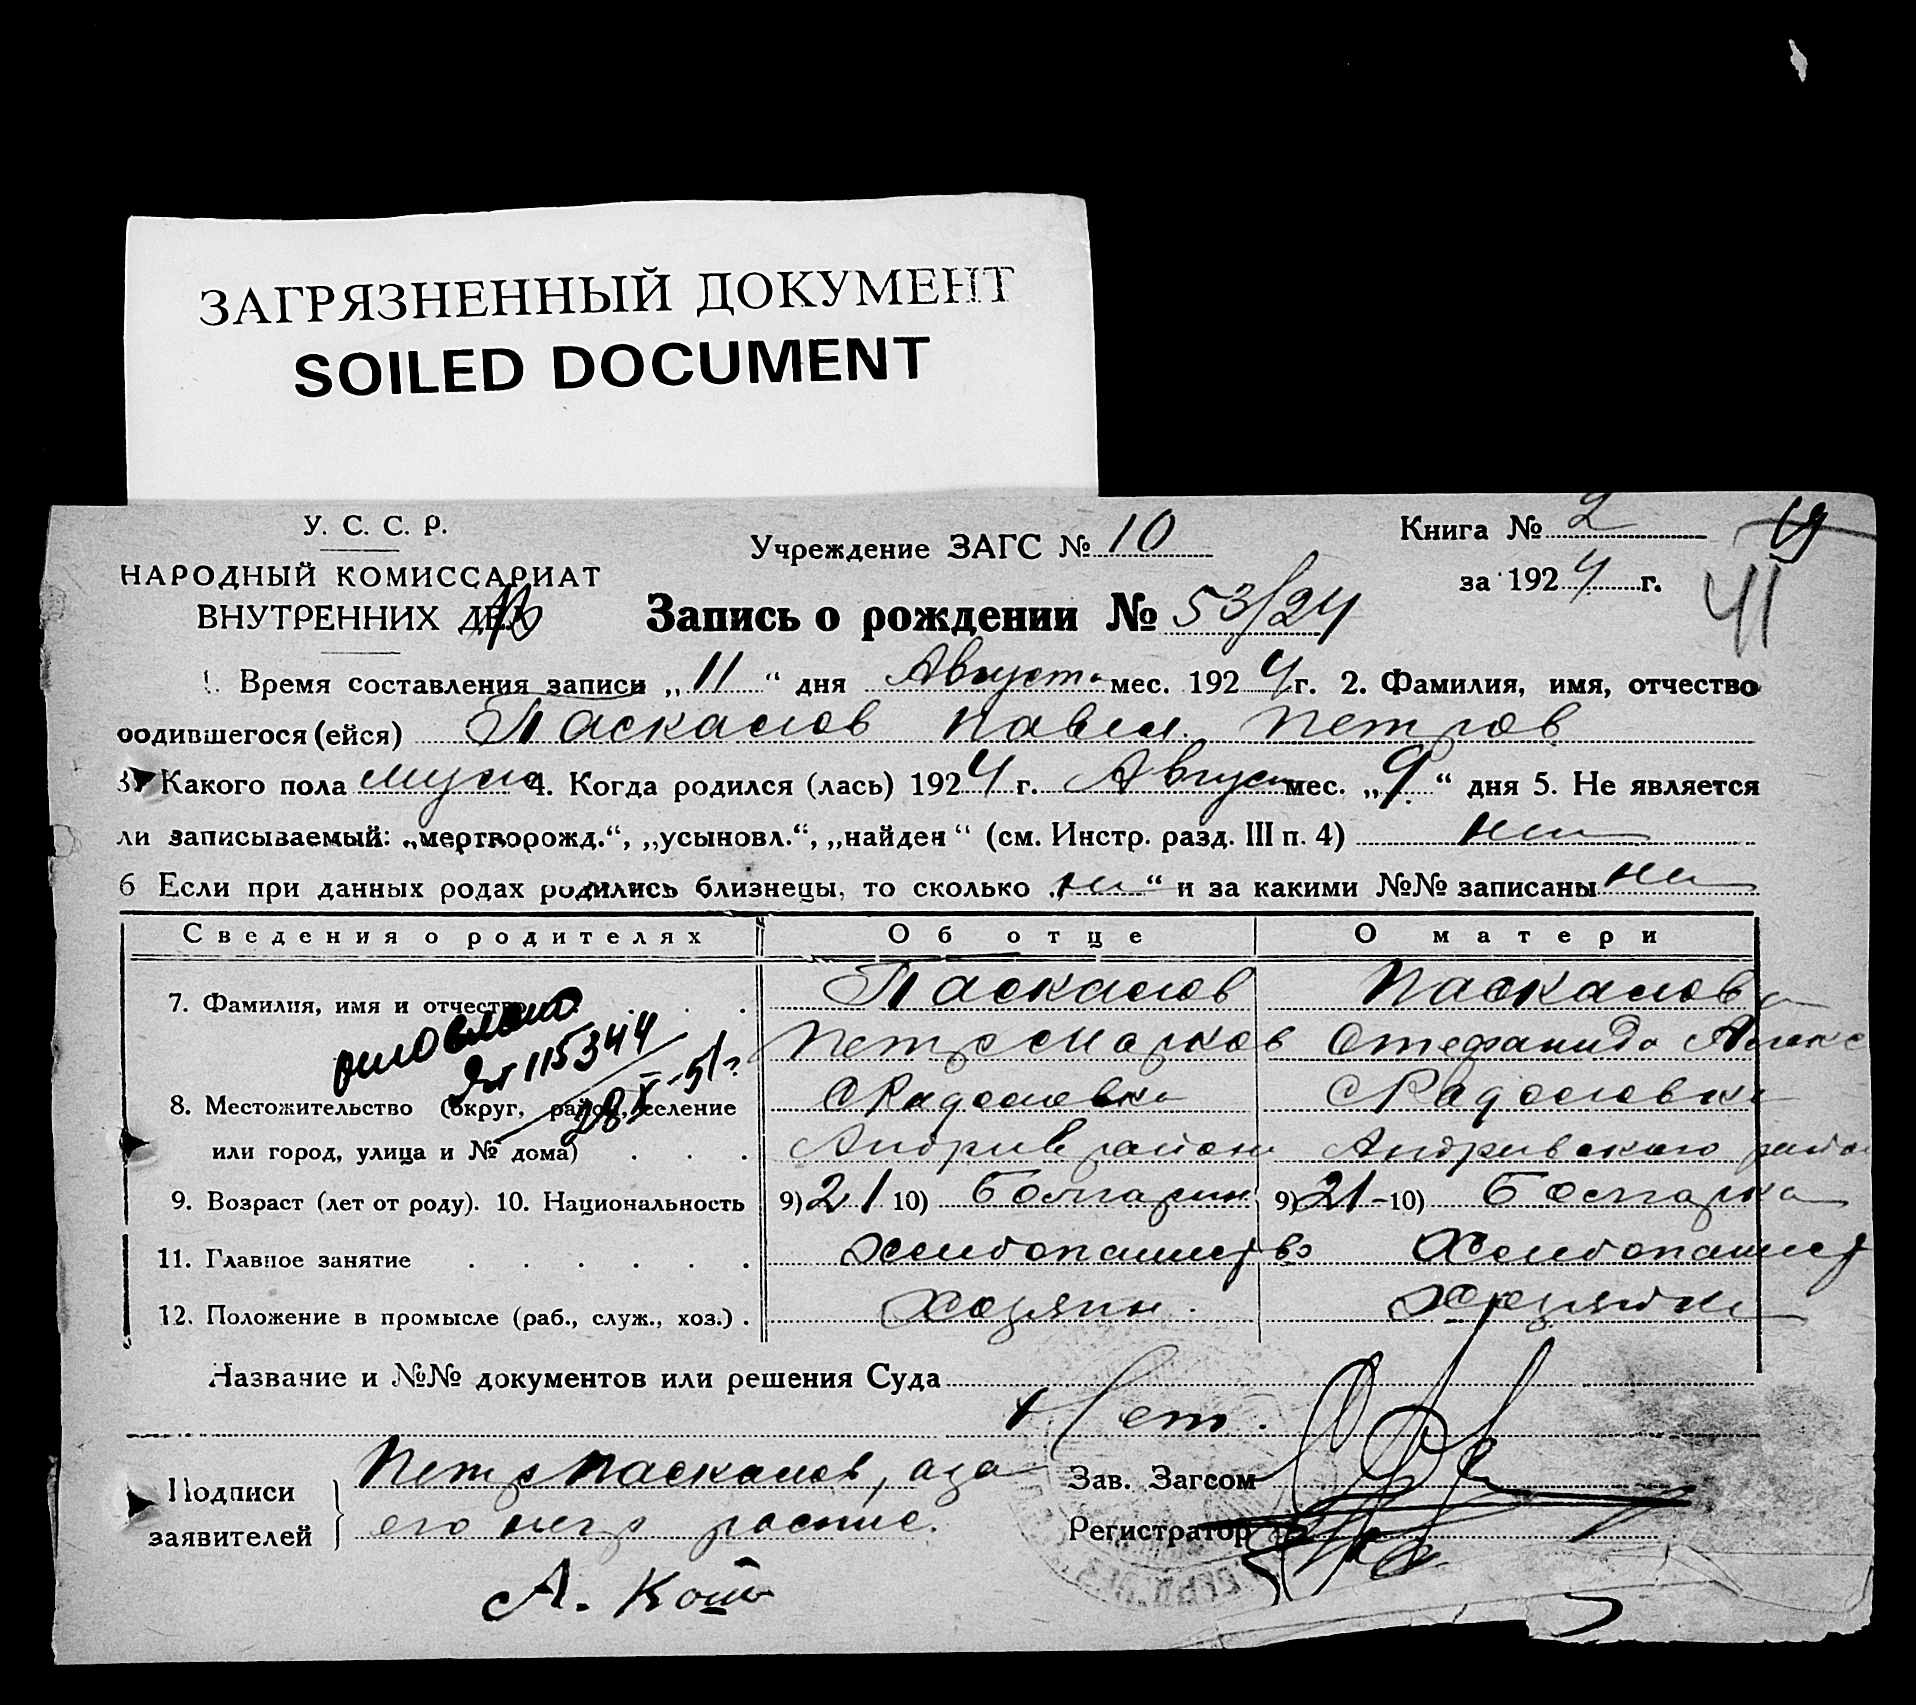 ЗАГРЯЗНЕННЫЙ ДОКУМЕНТ
SOILED DOCUMENT
У. С. С. Р.
НАРОДНЫЙ КОМИССАРИАТ
ВНУТРЕННИХ ДЕЛ
Учреждение ЗАГС № 10
Книга № 2
за 1924 г.
41
Запись о рождении № 53/24
1. Время составления записи „11“ дня Августа мес. 1924 г. 2. Фамилия, имя, отчество
родившегося (ейся) Паскалов Павел Петров
3. Какого пола муж 4. Когда родился (лась) 1924 г. Август мес. „9“ дня 5. Не является
ли записываемый: „мертворожд.“, „усыновл.“, „найден“ (см. Инстр. разд. III п. 4) нет
6 Если при данных родах родились близнецы, то сколько „нет“ и за какими №№ записаны нет
Сведения о родителях Об отце О матери
7. Фамилия, имя и отчество Паскалов Паскалова
Петр Марков Стефанида
115344
28/X-51г.
8. Местожительство (округ, район, селение С Радоловка С Радоловка
или город, улица и № дома) Андрив район Андривского район
9. Возраст (лет от роду). 10. Национальность 9) 21 10) Болгарин 9) 21 - 10) Болгарка
11. Главное занятие Хлебопашество Хлебопашест
12. Положение в промысле (раб., служ., хоз.) Хозяин. Хозяйка
Название и №№ документов или решения Суда
Нет.
Подписи Петр Паскалов, а за
заявителей его негр роспис.
Зав. Загсом
Регистратор
А.